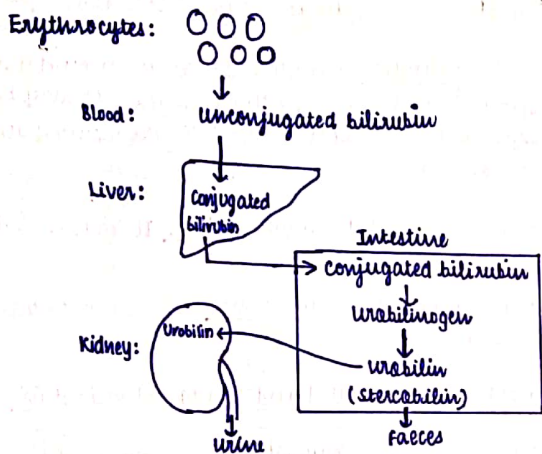 Erythrocytes:
Blood: Unconjugated bilirubin
Liver: Conjugated
bilirubin
Intestine
Conjugated bilirubin
Urobilinogen
Kidney: Urobilin
urobilin
(Stercobilin)
urine
Faeces